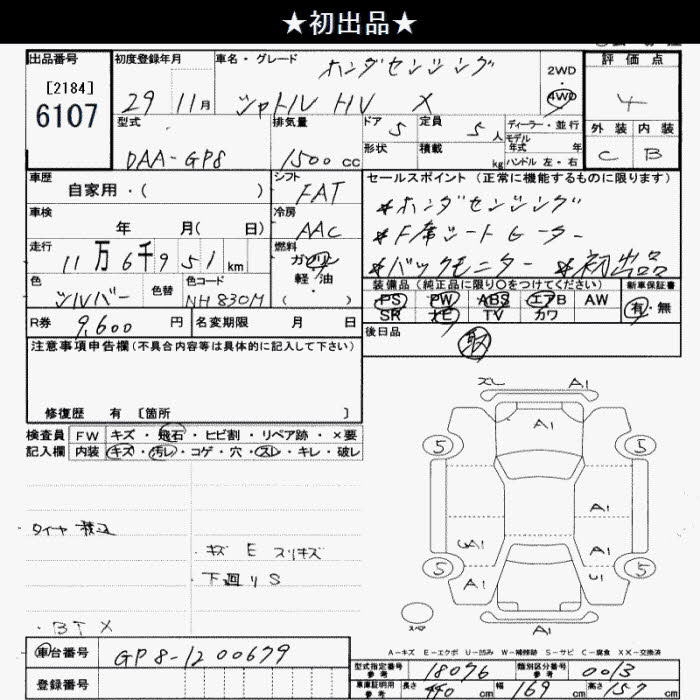 ★初出品★
出品番号 初度登録年月 車名・グレード 評価点
[2184] ホンダセンシング 2WD
6107 29 11月 シャトル HV X 4WD 4
型式 排気量 ドア 5 定員 5人 ディーラー・並行 外装 内装
モデル年式 年
DAA-GP8 1500cc 形状 積載 kg ハンドル 左・右 C B
車歴 シフト セールスポイント (正常に機能するものに限ります)
自家用・( ) FAT *ホンダセンシング
車検 冷房
年 月( 日) AAC *F席シートヒーター
走行 燃料
11万6千951km ガソリン *バックモニター *初出品
色 色替 色コード 軽油 装備品 (純正品に限り○をつけてください) 新車保証書
シルバー NH830M ( ) PS PW ABS エアB AW 有・無
SR ナビ TV カワ
R券 9,600円 名変期限 月 日 後日品
注意事項申告欄 (不具合内容等は具体的に記入して下さい) 取
修復歴 有 [箇所 ]
検査員 FW キズ・飛石・ヒビ割・リペア跡・×要
記入欄 内装 キズ・汚レ・コゲ・穴・スレ・キレ・破レ
XL A1
A1
5 5
A1
タイヤ 積込
キズ E スリキズ
下廻り S
A1 A1
5 5
A1 U1
スペア
A1
・BTX
A-キズ E-エクボ U-凹み W-補修跡 S-サビ C-腐食 XX-交換済
車台番号 GP8-1200679
型式指定番号 参考 18076 類別区分番号 参考 0013
登録番号 車庫証明用 参考 長さ 440cm 幅 169cm 高さ 157cm